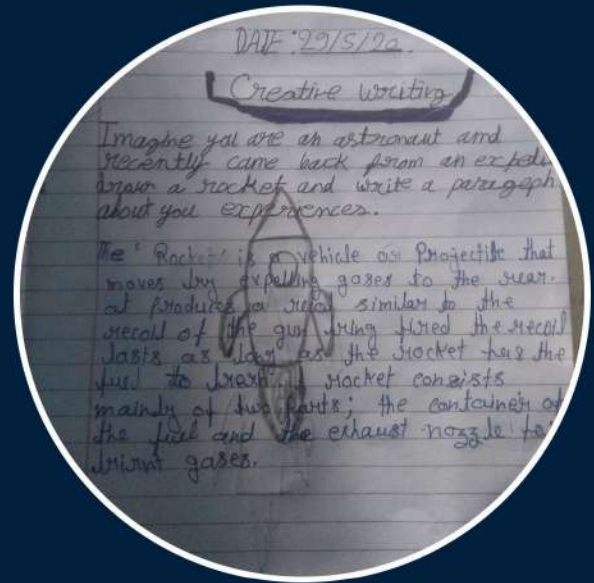 DATE: 29/5/20.
Creative writing
Imagine you are an astronaut amd
recently came back from an
draw a rocket and write a parageph
about you experiences.
The 'Rocket' is a vehicle or Projectile that
moves by expelling gases to the rear.
at produces a similar to the
recoil of the gun fired the recoil
lasts as as the rocket has the
fuel to rocket consists
mainly of two parts; the container of
the fuel and the exhaust nozzle
gases.